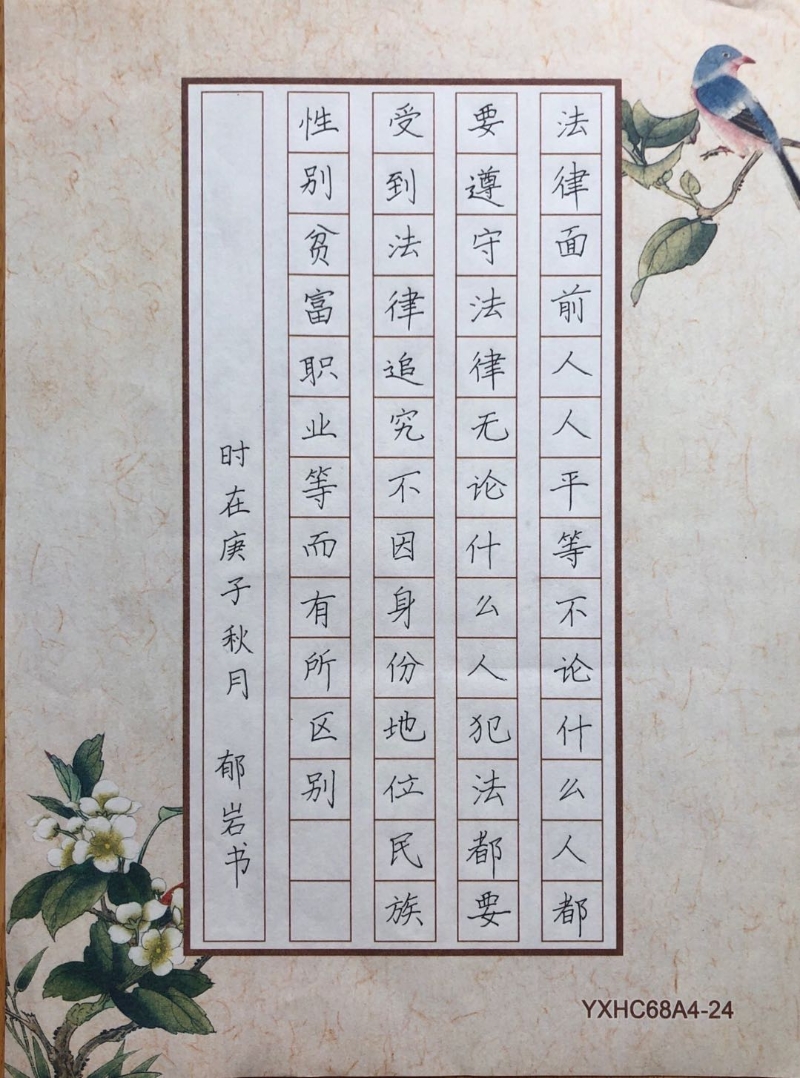 法律面前人人平等不论什么人都
要遵守法律无论什么人犯法都要
受到法律追究不因身份地位民族
性别贫富职业等而有所区别
时在庚子秋月 郁岩书
YXHC68A4-24